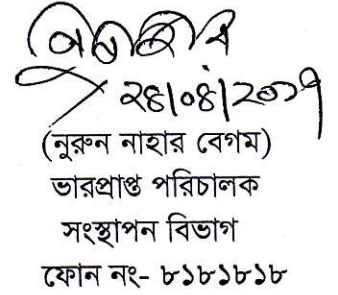 ২৪/০৪/২০১৭
(নুরুন নাহার বেগম)
ভারপ্রাপ্ত পরিচালক
সংস্থাপন বিভাগ
ফোন নং- ৮১৮১৮১৮